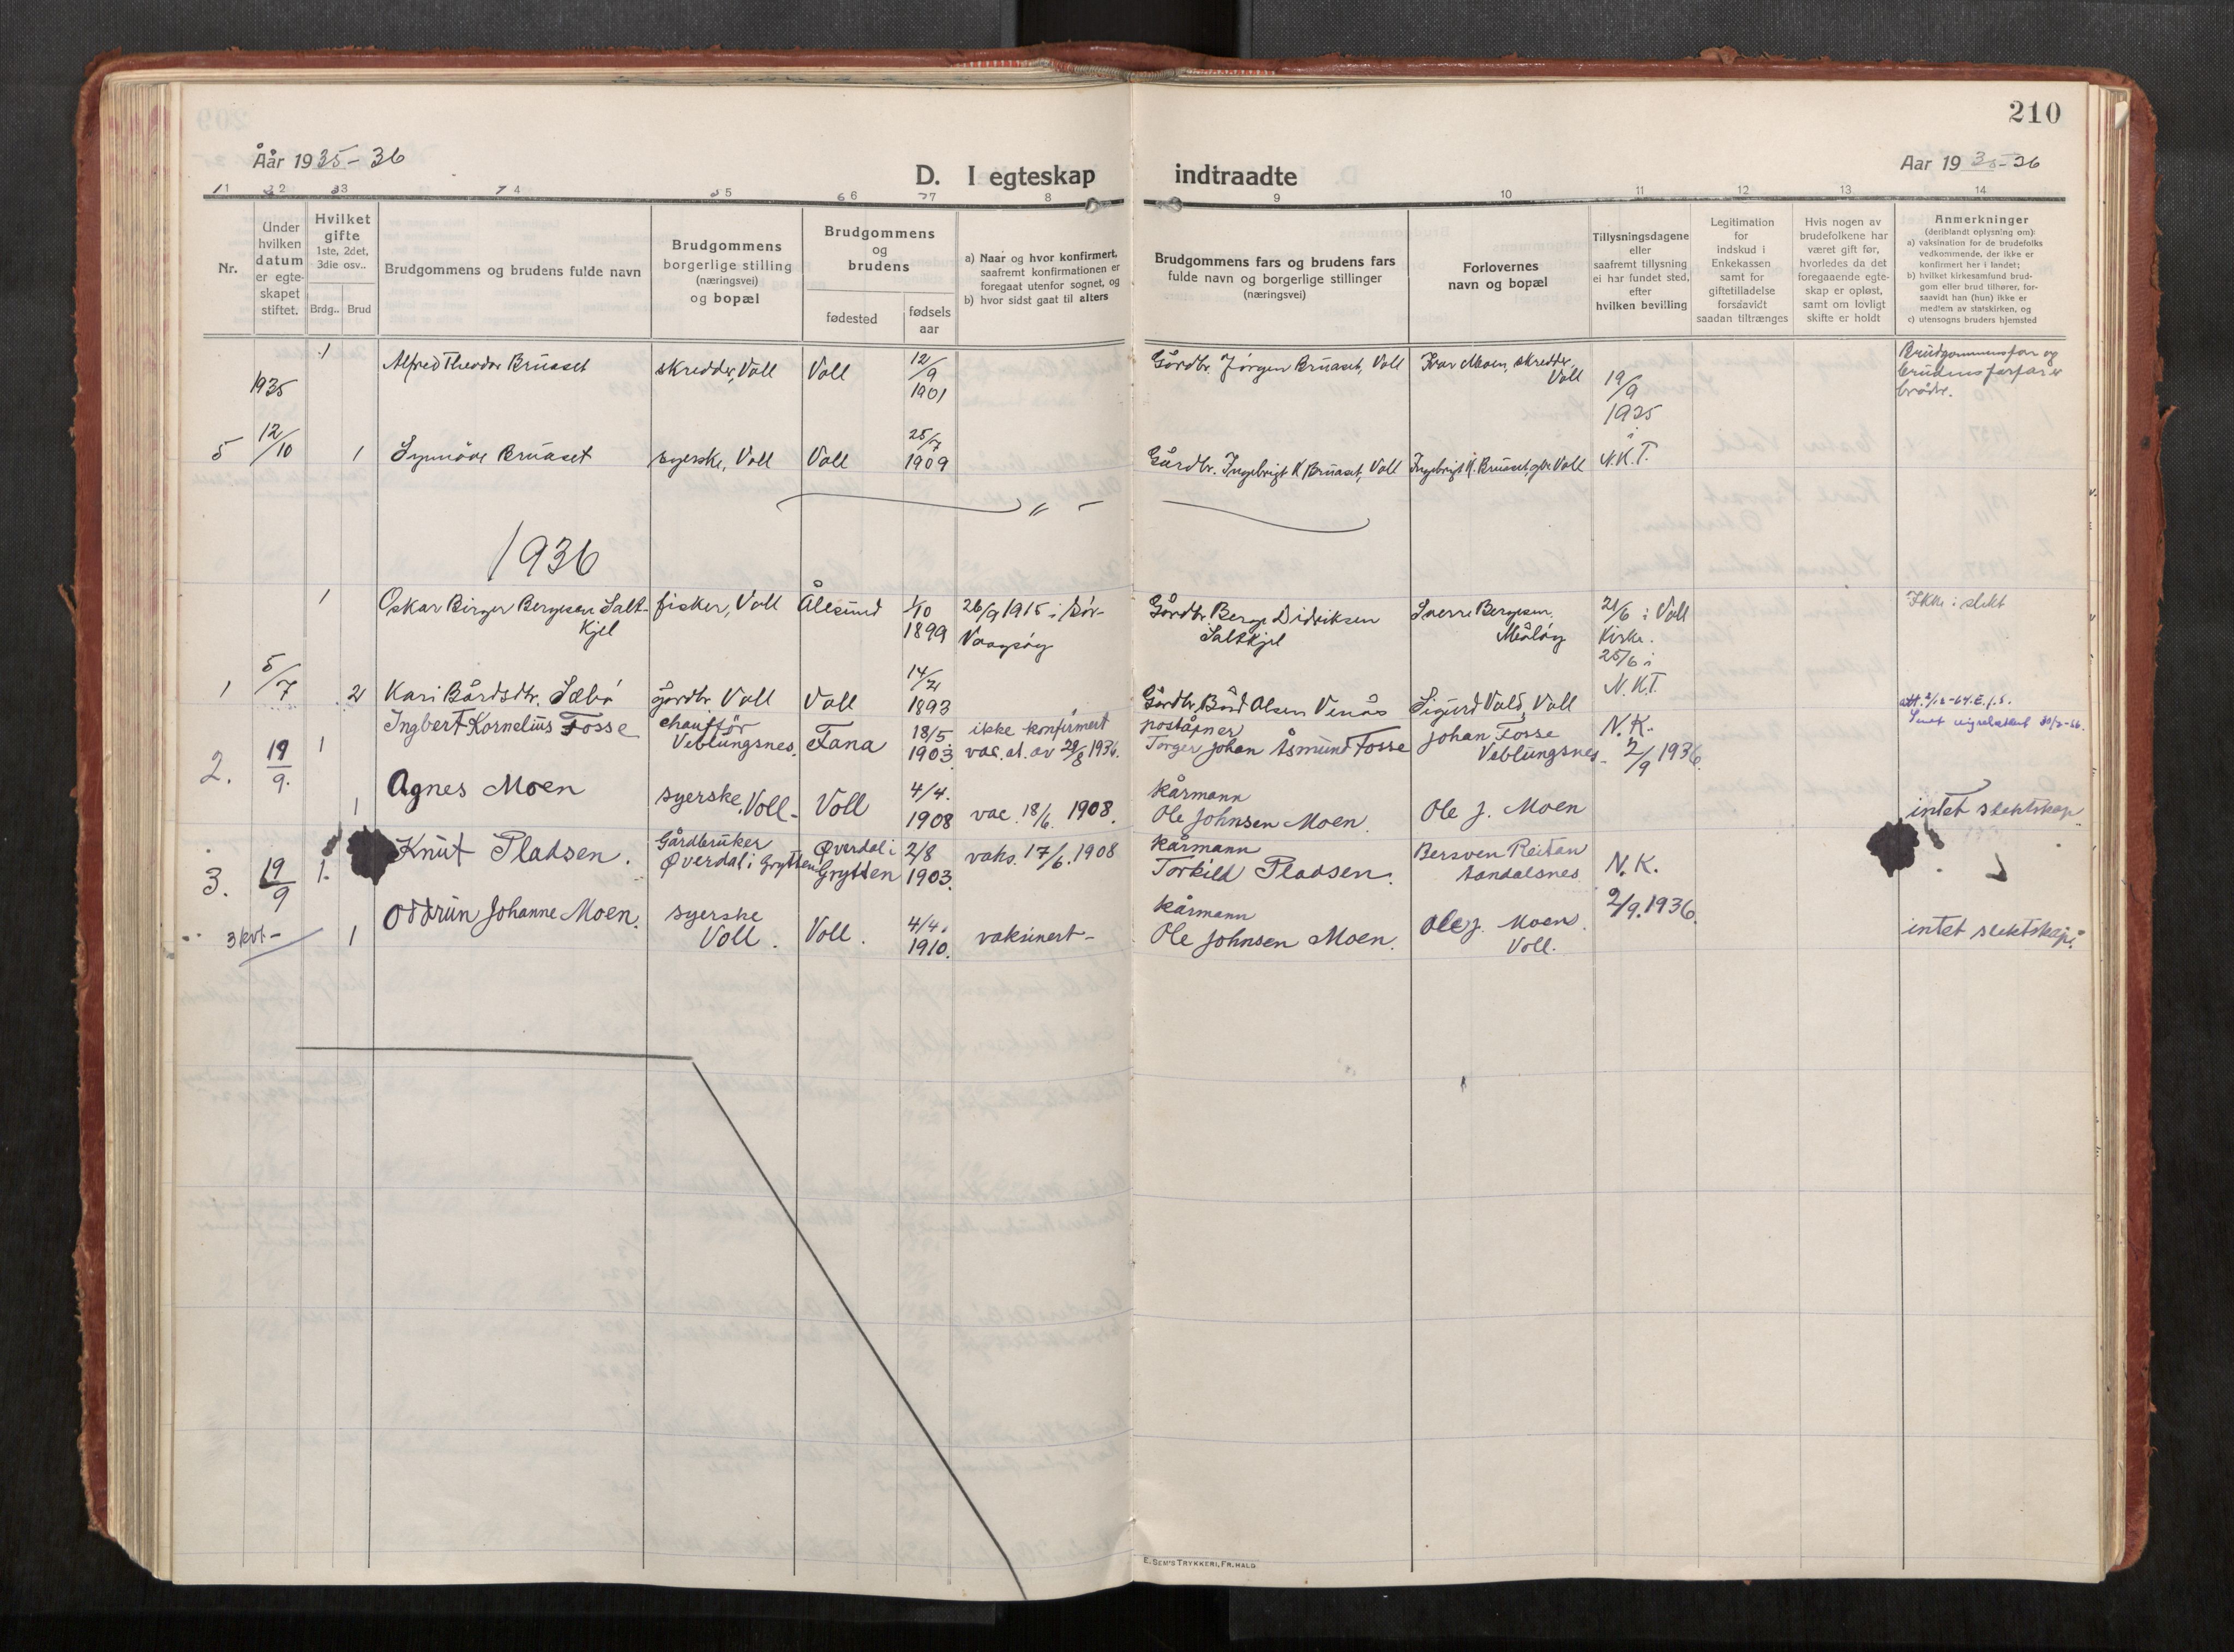 210
Åår 1935-36
D. I egteskap indtraadte
Aar 1935-36
1 2 3 4 5 6 7 8 9 10 11 12 13 14
Nr.
Under hvilken datum er egte-skapet stiftet.
Hvilket gifte
1ste, 2det, 3die osv..
Brdg.. Brud
Brudgommens og brudens fulde navn
Brudgommens borgerlige stilling (næringsvei) og bopæl
Brudgommens og brudens
fødested
fødsels aar
a) Naar og hvor konfirmert, saafremt konfirmationen er foregaat utenfor sognet, og
b) hvor sidst gaat til alters
Brudgommens fars og brudens fars fulde navn og borgerlige stillinger (næringsvei)
Forlovernes navn og bopæl
Tillysningsdagene eller saafremt tillysning ei har fundet sted, efter hvilken bevilling
Legitimation for indskud i Enkekassen samt for giftetilladelse forsaavidt saadan tiltrænges
Hvis nogen av brudefolkene har været gift før, hvorledes da det foregaaende egte-skap er opløst, samt om lovligt skifte er holdt
Anmerkninger
(deriblandt oplysning om):
a) vaksination for de brudefolks vedkommende, der ikke er konfirmert her i landet;
b) hvilket kirkesamfund brud-gom eller brud tilhører, for-saavidt han (hun) ikke er medlem av statskirken, og
c) utensogns bruders hjemsted
1935
1 Alfred Theodor Bruaset skredder, Voll Voll 12/9 1901 Gårdbr. Jørgen Bruaset, Voll Ivar Moen, skredder, Voll 19/9 1935 i N.K.T.
Brudgommens far og
brudens farfar er
brødre.
5 12/10 1 Synnöve Bruaset syerske, Voll Voll 25/7 1909 Gårdbr. Ingebrigt K Bruaset, Voll Ingebrigt K. Bruaset, gbr. Voll
1936
1 Oskar Birger Bergesen Salt-kjel fisker, Voll Ålesund 1/10 1899 26/9 1915 i Sør-Vaagsøy Gårdbr. Berge Didriksen Saltkjel Sverre Bergesen, Måløy 21/6 i Voll Kirke. 25/6 i N.K.T. Ikke i slekt
1 5/7 2 Kari Bårdsdtr. Sæbø gårdbr. Voll Voll 14/2 1893 Gårdbr. Bård Olsen Venås Sigurd Vold, Voll
2. 19/9. 1 Ingbert Kornelius Fosse chauffør Veblungsnes. Fana 18/5 1903. ikke konfirmert vac. at. av 29/8 1936. poståpner Torger Johan Åsmund Fosse Johan Fosse Veblungsnes N.K. 2/9 1936.
1 Agnes Moen syerske, Voll - Voll 4/4. 1908 vac. 18/6. 1908. kårmann Ole Johnsen Moen. Ole J. Moen intet slektskap
3. 19/9 1. Knut Pladsen. Gårdbruker Øverdal i Grytten Øverdal i Grytten 2/8 1903. vaks. 17/6. 1908 kårmann Torkild Pladsen. Bersven Reitan Aandalsnes N.K. 2/9. 1936.
3 kvt - 1 Oddrun Johanne Moen. syerske Voll. Voll. 4/4. 1910. vaksinert - kårmann Ole Johnsen Moen. Ole J. Moen. Voll. intet slektskap.
E. SEM'S TRYKKERI, FR.HALD